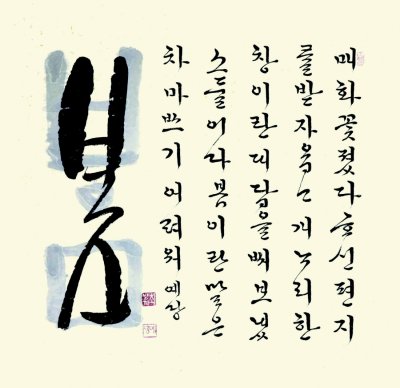 매화꽃졌다ᄒᆞ신편지
를받자옵고개나리한
창이란대답을써보냈
소둘이다봄이란말은
차마쓰기어려워
봄